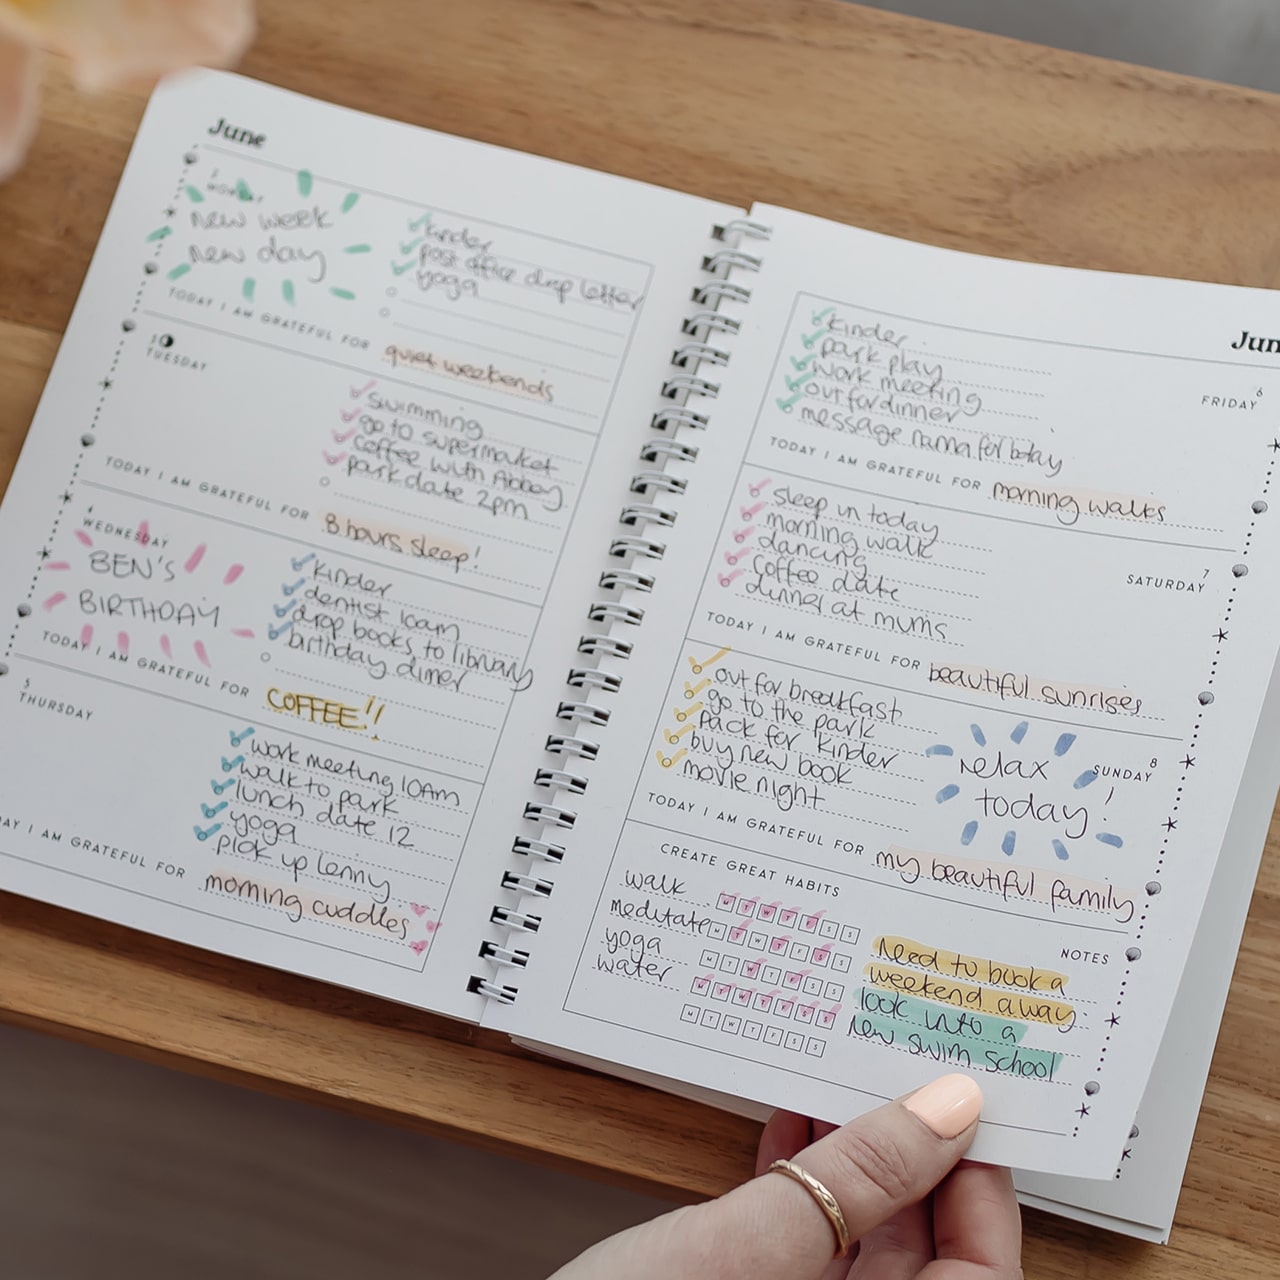 June
2
MONDAY
new week
new day
kinder
post office drop letter
yoga
TODAY I AM GRATEFUL FOR quiet weekends
3
TUESDAY
swimming
go to supermarket
coffee with Abbey
park date 2pm
TODAY I AM GRATEFUL FOR 8 hours sleep!
4
WEDNESDAY
BEN'S
BIRTHDAY
kinder
dentist 10am
drop books to library
birthday diner
TODAY I AM GRATEFUL FOR COFFEE!!
5
THURSDAY
work meeting 10AM
walk to park
lunch date 12
yoga
pick up lenny
AY I AM GRATEFUL FOR morning cuddles
Jun
6
FRIDAY
kinder
park play
work meeting
out for dinner
message nama for bday
TODAY I AM GRATEFUL FOR morning walks
7
SATURDAY
sleep in today
morning walk
dancing
coffee date
dinner at mums
TODAY I AM GRATEFUL FOR beautiful sunrises
8
SUNDAY
out for breakfast
go to the park
pack for kinder
buy new book
movie night
relax
today!
TODAY I AM GRATEFUL FOR my beautiful family
CREATE GREAT HABITS
walk M T W T F S S
meditate M T W T F S S
yoga M T W T F S S
water M T W T F S S
M T W T F S S
NOTES
need to book a
weekend away
look into a
new swim school